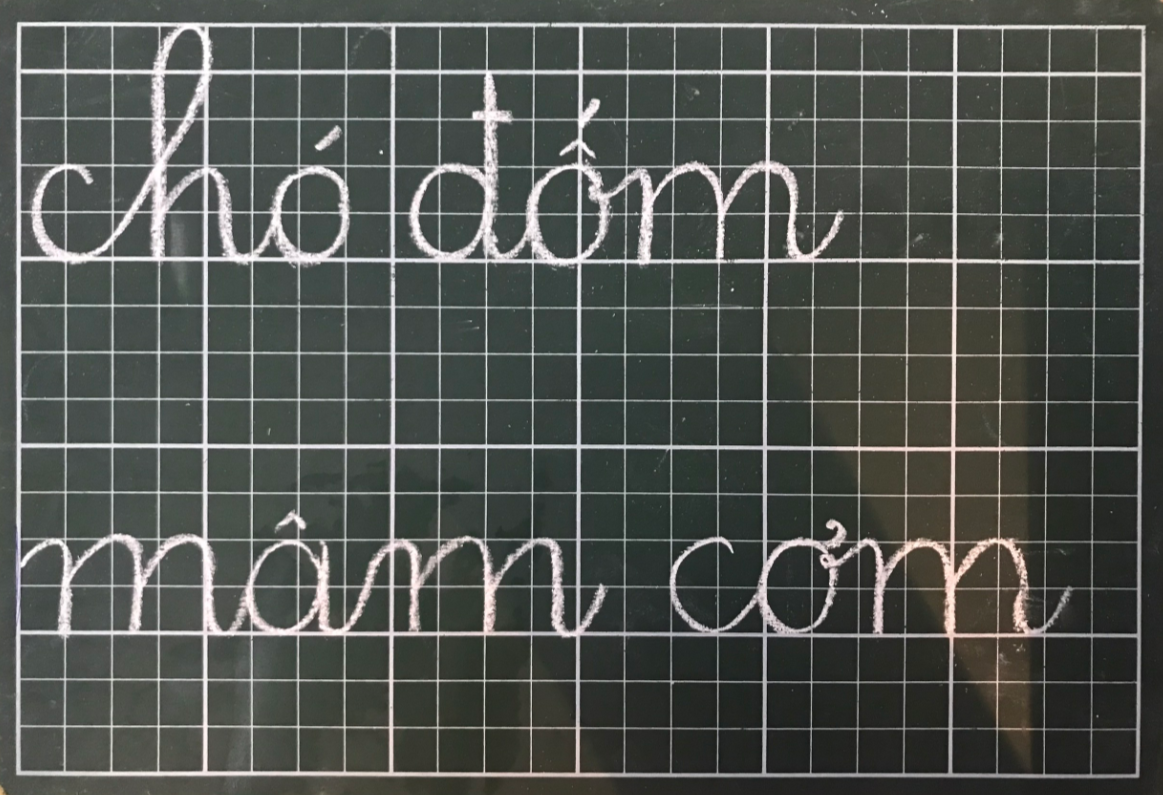 chó đốm
mâm cơm